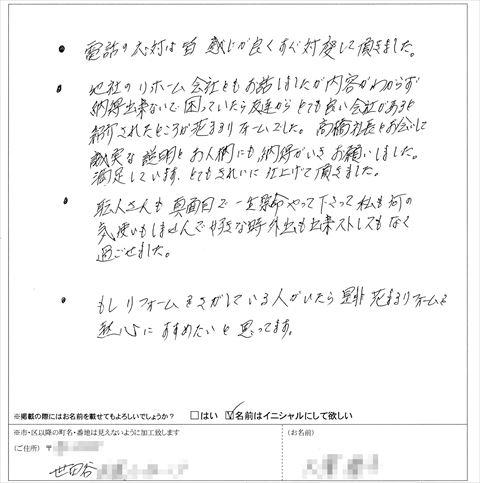 ・電話の応対は皆 感じが良くすぐ対応して頂きました。
・他社のリホーム会社ともお話しましたが内容がわからず
納得出来ないで困っていたら友達からとても良い会社があると
紹介されたところが花まるリフォームでした。高橋社長とお会いして
誠実な説明とお人柄にも納得がいきお願いしました。
満足しています、とてもきれいに仕上げて頂きました。
・職人さんも真面目で一生懸命やって下さって私も何の
気使いもしませんで好きな時外出も出来ストレスもなく
過ごせました。
・もしリフォームをさがしている人がいたら是非花まるリフォームを
熱心にすすめたいと思ってます。
※掲載の際にはお名前を載せてもよろしいでしょうか? □はい ☑名前はイニシャルにして欲しい
※市・区以降の町名・番地は見えないように加工致します
(ご住所) 〒
(お名前)
世田谷